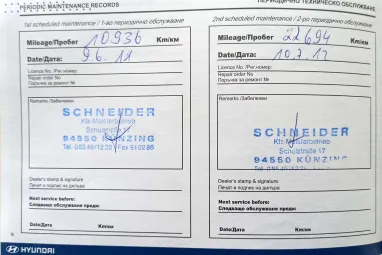 PERIODIC MAINTENANCE RECORDS
ПЕРИОДИЧНО ТЕХНИЧЕСКО ОБСЛУЖВАНЕ
1st scheduled maintenance / 1-во периодично обслужване
Mileage/Пробег 10936 Km/км
Date/Дата: 9.6.11
Licence No /Рег.номер:
Repair order No
Поръчка за ремонт №:
Remarks /Забележки
SCHNEIDER
Kfz-Meisterbetrieb
Schulstraße 17
94550 KÜNZING
Dealer's stamp & signature
Печат и подпис на дилъра
Next service before:
Следващо обслужване преди:
Date/Дата Km/км
2nd scheduled maintenance / 2-ро периодично обслужване
Mileage/Пробег 22694 Km/км
Date/Дата: 10.7.12
Licence No /Рег.номер:
Repair order No
Поръчка за ремонт №:
Remarks /Забележки
SCHNEIDER
Kfz-Meisterbetrieb
Schulstraße 17
94550 KÜNZING
Dealer's stamp & signature
Печат и подпис на дилъра
Next service before:
Следващо обслужване преди:
Date/Дата Km/км
HYUNDAI